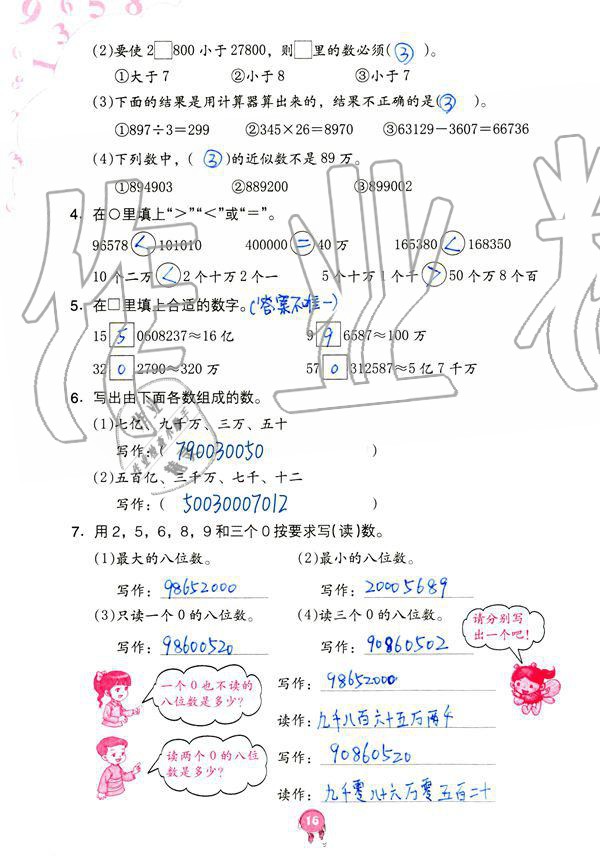 9658
13
(2)要使2□800小于27800,则□里的数必须(③)。
①大于7 ②小于8 ③小于7
(3)下面的结果是用计算器算出来的,结果不正确的是(③)。
①897÷3=299 ②345×26=8970 ③63129-3607=66736
(4)下列数中,(③)的近似数不是89万。
①894903 ②889200 ③899002
4. 在○里填上“>”“<”或“=”。
96578<101010 400000=40万 165380<168350
10个二万<2个十万2个一 5个十万1个千>50个万8个百
5. 在□里填上合适的数字。(答案不唯一)
15 5 0608237≈16亿 9 9 6587≈100万
32 0 2790≈320万 57 0 312587≈5亿7千万
6. 写出由下面各数组成的数。
(1)七亿、九千万、三万、五十
写作:( 790030050 )
(2)五百亿、三千万、七千、十二
写作:( 50030007012 )
7. 用2,5,6,8,9和三个0按要求写(读)数。
(1)最大的八位数。 (2)最小的八位数。
写作: 98652000 写作: 20005689
(3)只读一个0的八位数。 (4)读三个0的八位数。
写作: 98600520 写作: 90860502
请分别写出一个吧!
一个0也不读的八位数是多少?
写作: 98652000
读作: 九千八百六十五万两千
读两个0的八位数是多少?
写作: 90860520
读作: 九千零八十六万零五百二十
16
作业精